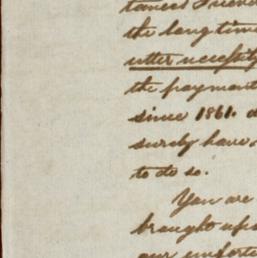 the long time
utter necessity
the payment
since 1861.
surely have
to do so.
You are
brought upo
our unfortu